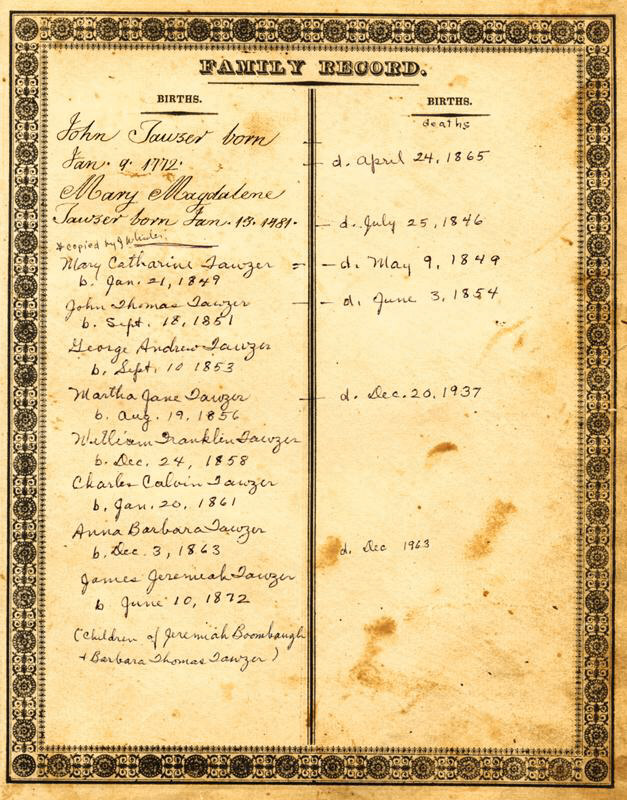 FAMILY RECORD.
BIRTHS.
John Tawzer born
Jan. 9. 1772.
Mary Magdalene
Tawzer born Jan. 13. 1781.
* copied by J
Mary Catharine Tawzer =
b. Jan. 21, 1849
John Thomas Tawzer
b. Sept. 18, 1851
George Andrew Tawzer
b. Sept. 10 1853
Martha Jane Tawzer
b. Aug. 19, 1856
William Franklin Tawzer
b. Dec. 24, 1858
Charles Calvin Tawzer
b. Jan. 20, 1861
Anna Barbara Tawzer
b. Dec. 3, 1863
James Jeremiah Tawzer
b. June 10, 1872
(Children of Jeremiah Boombaugh
+ Barbara Thomas Tawzer)
BIRTHS.
deaths
— d. April 24, 1865
— d. July 25, 1846
— d. May 9, 1849
— d. June 3, 1854
— d. Dec. 20, 1937
d. Dec 1963